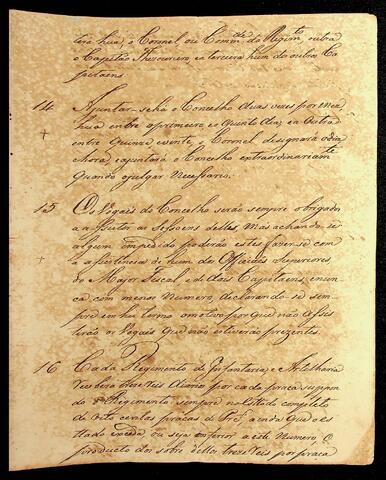 terá hua, o Coronel, ou Comm.de do Regim.to, outra
o Capitão Thesoureiro, e a terceira hum dos outros Ca
pitaens.
14 Ajuntar-se há o Concelho duas vezes por mez
hua entre o primeiro e o Quinto dia, e a Outra
entre Quinze, e vinte, o Coronel designará o dia
e hora, e ajuntará o Concelho extraordinariam.te
quando o julgar Necessario.
15 Os Vogais do Concelho serão sempre obrigados
a assistir as Sessoens delles, mas achando-se
algum impedido poderão estes fazer-se com
a assistencia de hum dos Officiaes Superiores
do Major Fiscal, e de dois Capitaens, e nun
ca com menos Numero, declarando-se sem
pre em hu termo o motivo por que não assis
tirão os Vogais que não estiverão prezentes.
16 Cada Regimento de Infantaria, e Artelharia
vencerá treze reis diarios por cada praça suppon
do o Regimento sempre no estado completo
de Oito centas praças de Pret, ainda que o es
tado exceda ou seja inferior a este Numero, O
producto dos sobre ditos treze reis por praça